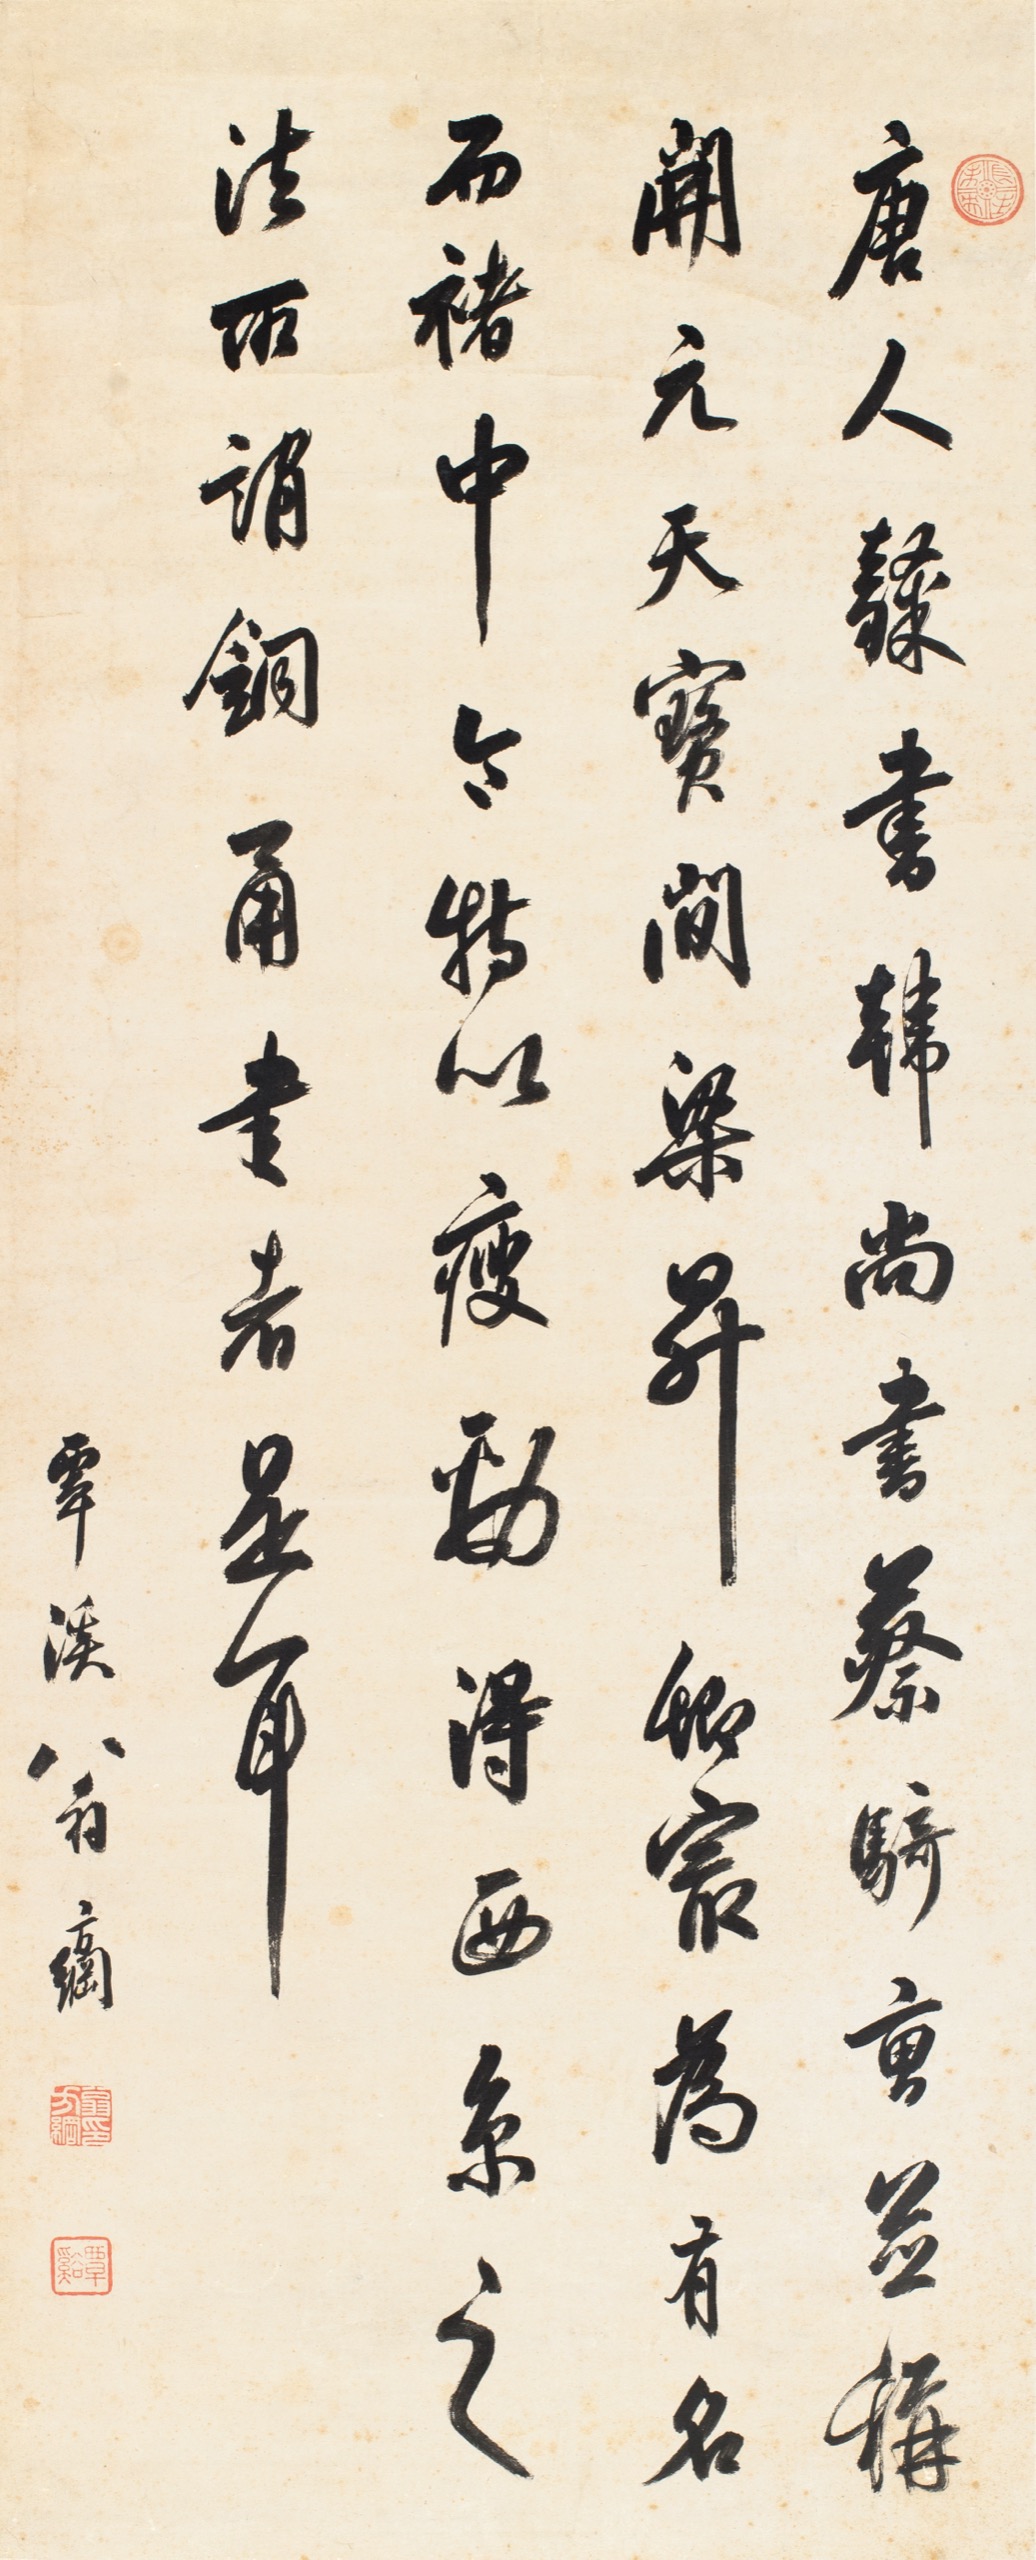 唐人隸書韓尚書蔡騎曹並稱
開元天寶間梁昇卿㝡為有名
而褚中令特以瘦勁得西京之
法所謂銅甬書者是耳
覃溪翁方綱
翁方綱印
覃谿